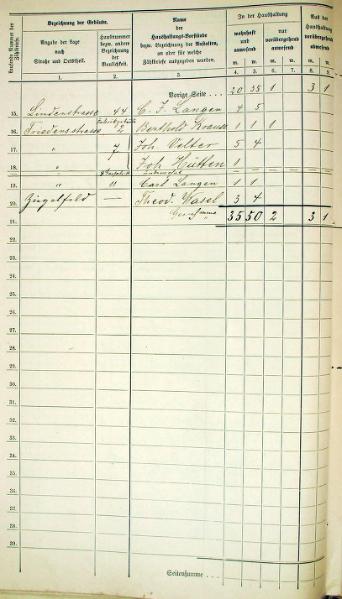 Bezeichnung der Gebäude. Name In der Haushaltung Aus der
Laufende Nummer der Zählkarte.
Angabe der Lage nach Straße und Ortstheil. Hausnummer bezw. andere Bezeichnung der Baulichkeit. der Haushaltungs-Vorstände bezw. Bezeichnung der Anstalten, an oder für welche Zählbriefe ausgegeben wurden. wohnhaft und anwesend nur vorübergehend anwesend Haushaltung vorübergehend abwesend
m. w. m. w. m. w.
1. 2. 3. 4. 5. 6. 7. 8. 9.
Vorige Seite . . . 20 35 1 3 1
15. Lindenstrasse 44 C. F. Langen 4 5
16. Friedensstrasse 2 Berthold Krause 1 1 1
17. " 7 Joh. Velter 5 4
18. " 7 Joh Hütten 1
19. " " Carl Langen 1 1
20. Ziegelfeld — Theod. Wasel 3 4
21. 35 50 2 3 1
22.
23.
24.
25.
26.
27.
28.
29.
30.
31.
32.
33.
34.
35.
36.
37.
38.
39.
Seitensumme . . .